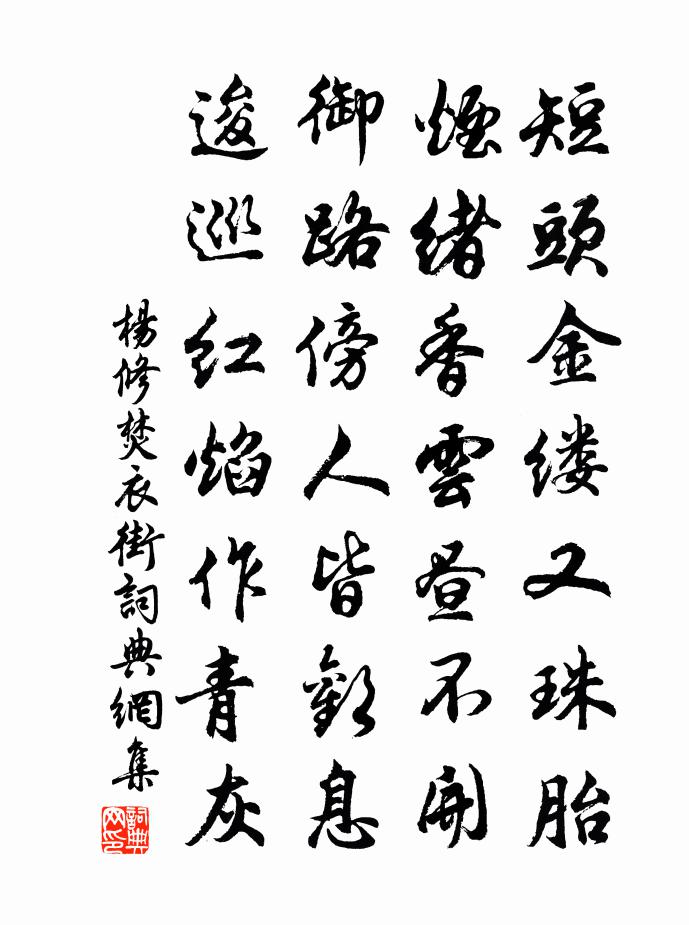 短頭金缕又珠胎
煙緒香雲昼不開
御路傍人皆歎息
逡巡紅焰作青灰
楊修焚衣街詞典網集
詞典网印